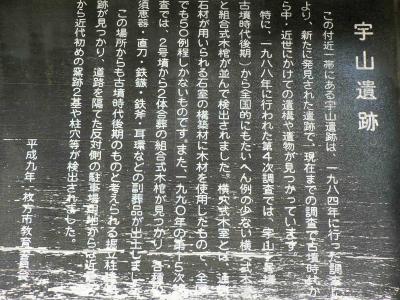 宇山遺跡
この付近一帯にある宇山遺跡は、一九八四年に行った調査に
より、新たに発見された遺跡で、現在までの調査で古墳時代か
ら中・近世にかけての遺構や遺物が見つかっています。
特に、一九八八年に行われた第4次調査では、宇山1号墳
(古墳時代後期)から全国的にもたいへん例の少ない横穴式木
と組合式木棺が並んで検出されました。横穴式木室とは、通常
石材が用いられる石室の構築材に木材を使用したもので、全国
でも50例程しかないものです。また、一九九〇年の第15次
査では、2号墳から2体合葬の組合式木棺が見つかり、各種
須恵器・直刀・鉄鏃・鉄斧・耳環などの副葬品が出土しまし
この場所からも古墳時代後期のものと考えられる掘立柱建
跡が見つかり、道路を隔てた反対側の駐車場用地からは近世
から近代初めの窯跡2基や柱穴等が検出されました。
平成九年 枚方市教育委員会